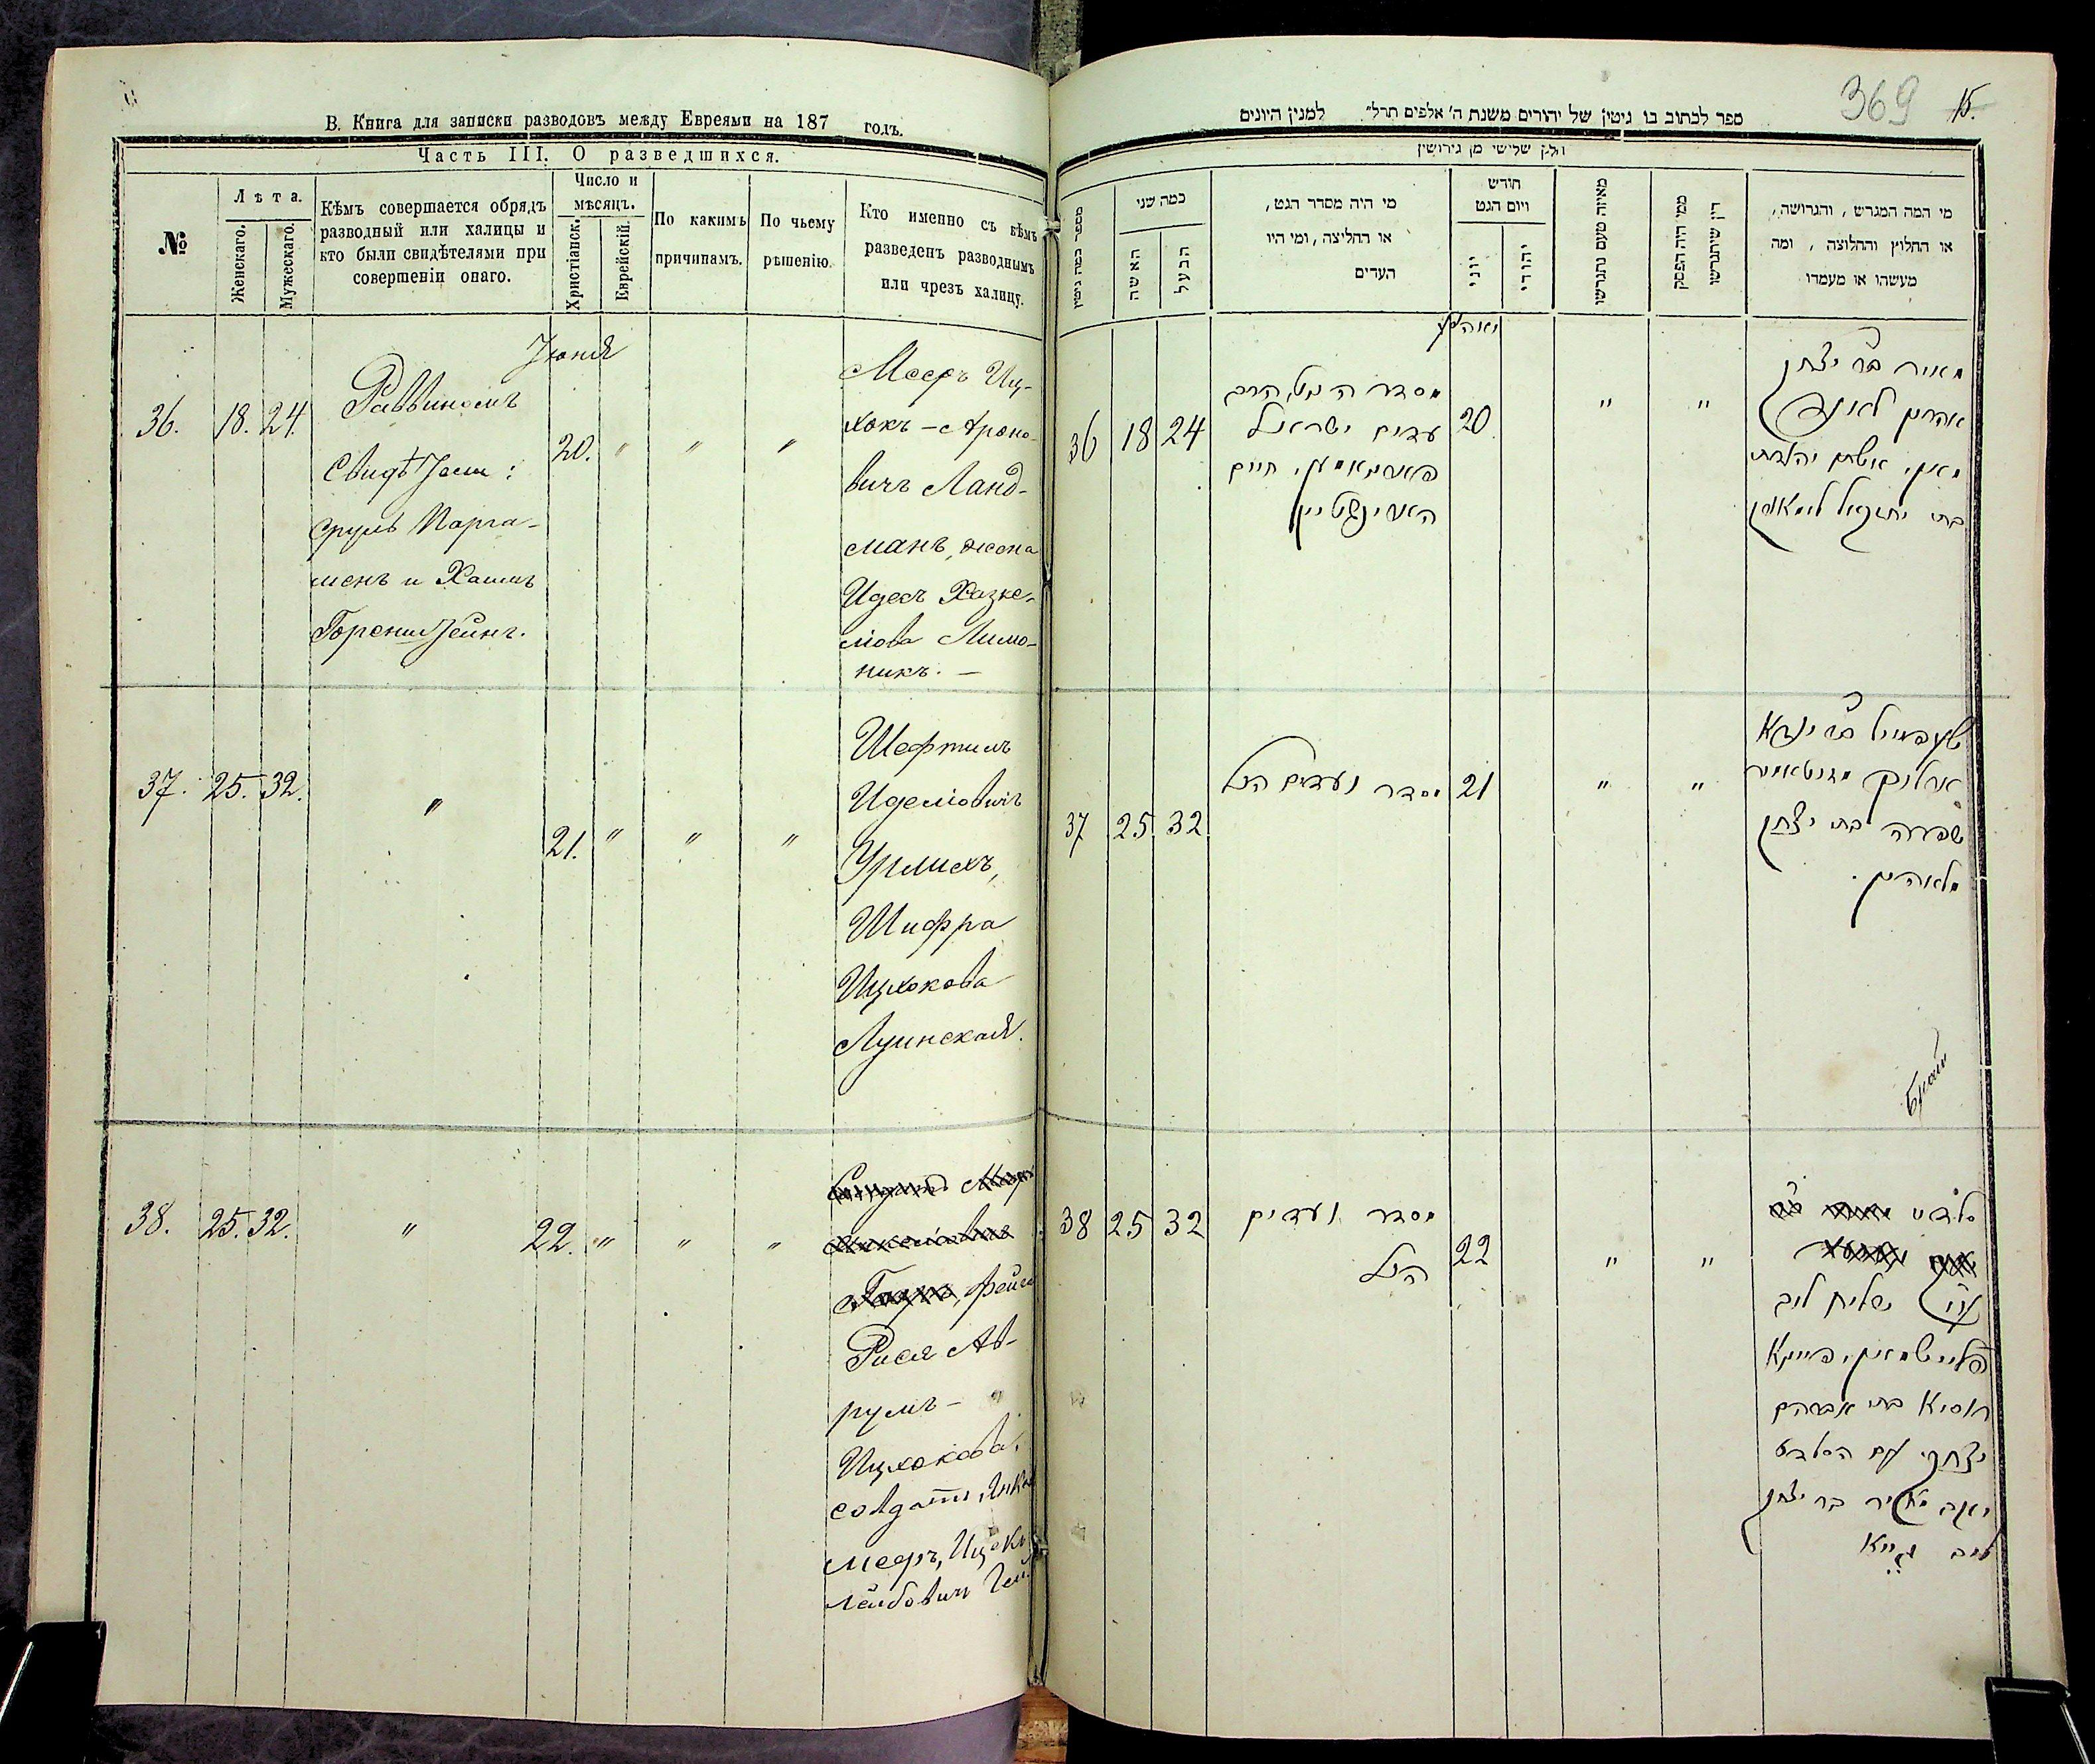 В. Книга для записки разводовъ между Евреями на 187 годъ.
Часть III. О разведшихся.
№
Лѣта.
Женскаго.
Мужескаго.
Кѣмъ совершается обрядъ
разводный или халицы и
кто были свидѣтелями при
совершеніи онаго.
Число и
мѣсяцъ.
Христіанск.
Еврейскій.
По какимъ
причинамъ.
По чьему
рѣшенію.
Кто именно съ кѣмъ
разведенъ разводнымъ
или чрезъ халицу.
Іюня
36. 18. 24.
Раввиномъ
Свидѣтели:
Сруль Парга-
менъ и Хаимъ
Горенштейнъ.
20. " " "
Меръ Иц-
хокъ-Ароно-
вичъ Ланд-
манъ, жена
Идесъ Хазке-
лова Лимо-
никъ. —
37. 25. 32. "
21. " " "
Шефтиль
Иделіовичъ
Урлихъ,
Шифра
Ицхокова
Лушнская.
38. 25. 32. "
22. " " "
Фейга
Рися Ав-
румъ-
Ицхокова,
солдатъ Янкель
Меръ, Ицекъ
Лейбовичъ
369 15.
ספר לכתוב בו גיטין של יהורים משנת ה' אלפים תרל״ למנין היונים
חלק שלישי מן גירושין
מספר כמה גיטין
כמה שני
האשה
הבעל
מי היה מסדר הגט,
או החליצה, ומי היו
העדים
חודש
ויום הגט
יוני
יהודי
מאיזה טעם נתגרשו
ממי היה הפסק
דין שיתגרשו
מי המה המגרש, והגרושה,
או החלוץ והחלוצה, ומה
מעשהו או מעמדו
36 18 24
מסדר הגט הרב
עדים ישראל
חיים
20 " "
מאיר בר יצחק
אהרן
בת יחזקאל
37 25 32
מסדר ועדים הנ״ל
21 " "
שעפטיל
שפרה בת יצחק
38 25 32
מסדר ועדים
הנ״ל
22 " "
רוסיא בת אברהם
יצחק עם הסלדט
יעקב מאיר בר יצחק
ליב